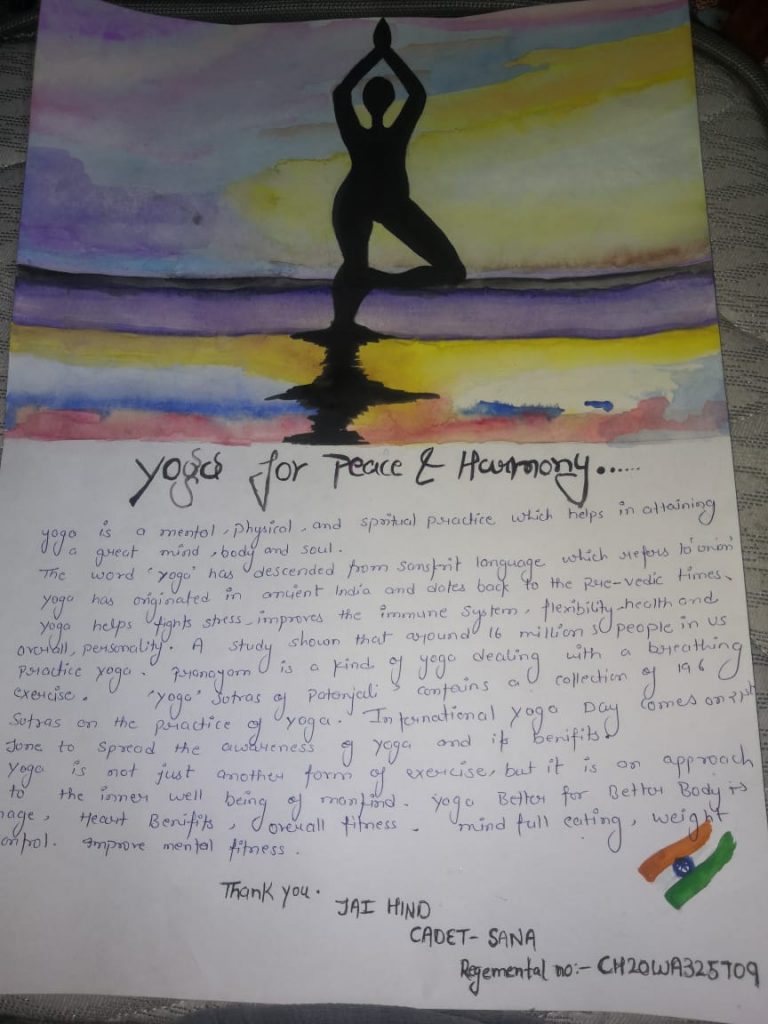 Yoga for Peace & Harmony......
yoga is a mental, physical, and spritual practice which helps in attaining
a great mind, body and soul.
The word 'yoga' has descended from sanskrit language which refers to 'union'
yoga has originated in ancient India and dates back to the pre-vedic times.
yoga helps fights stress, improves the immune system, flexibility, health and
overall, personality. A study shown that around 16 million s people in us
practice yoga. pranayam is a kind of yoga dealing with a breathing
exercise. 'yoga' Sutras of patanjali, contains a collection of 196
Sutras on the practice of yoga. International Yoga Day comes on 21st
June to spread the awareness of yoga and its benifits.
Yoga is not just another form of exercise, but it is an approach
to the inner well being of mankind. yoga Better for Better Body is
nage, Heart Benifits, overall fitness. mind full eating, weight
ontrol. Improve mental fitness.
Thank you.
JAI HIND
CADET- SANA
Regemental no:- CH20WA325709